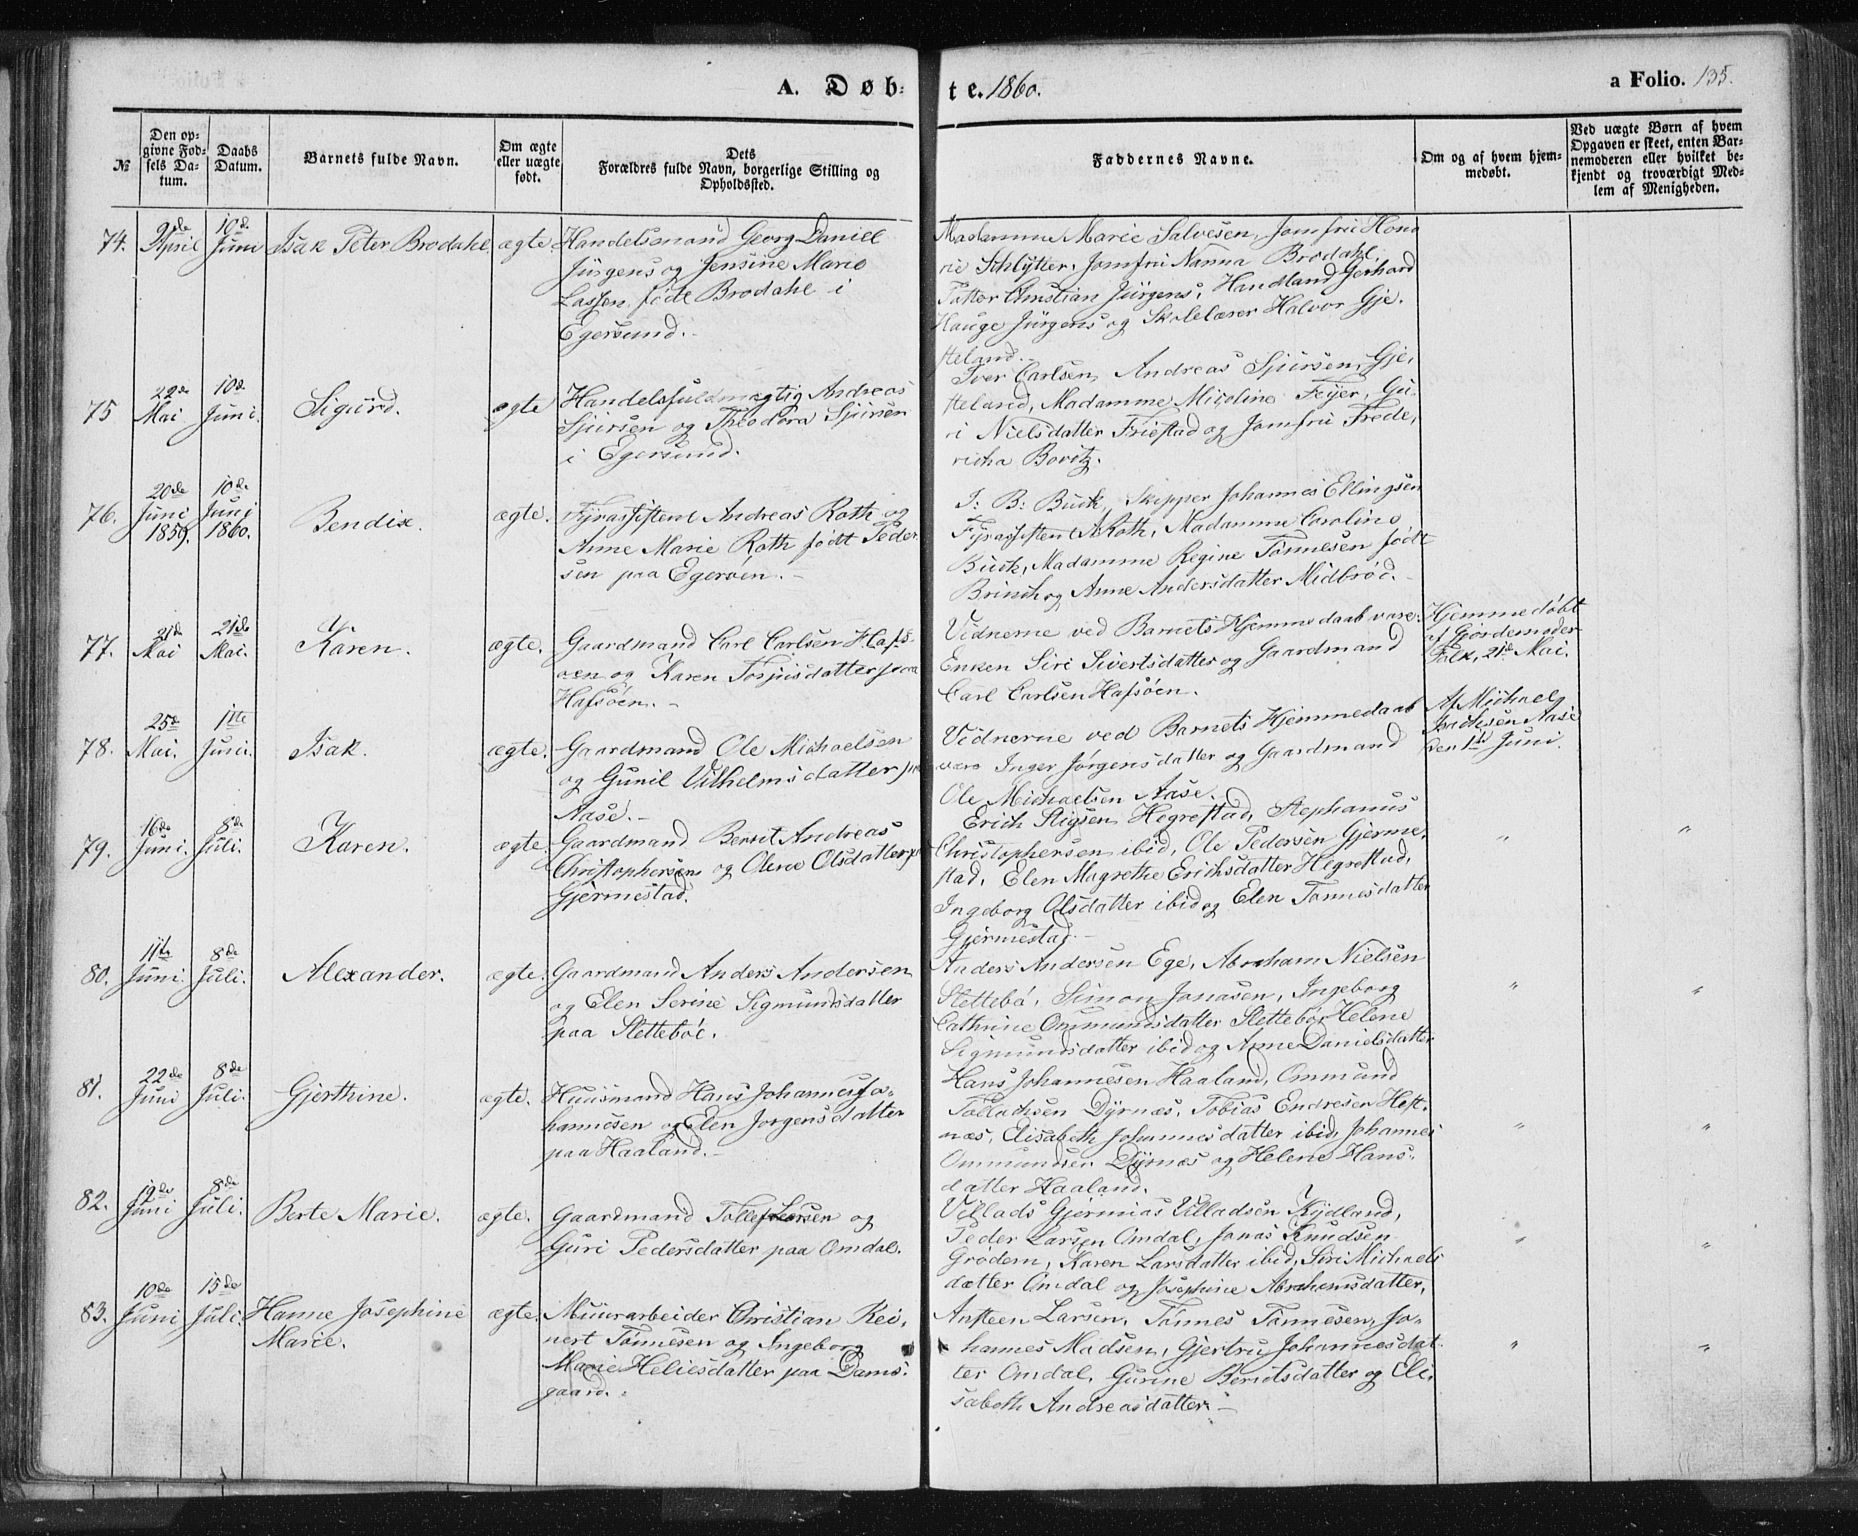 A. Døb-
te. 1860.
a Folio. 135.
№
Den op-
givne Fød-
sels Da-
tum.
Daabs
Datum.
Barnets fulde Navn.
Om ægte
eller uægte
født.
Dets
Forældres fulde Navn, borgerlige Stilling og
Opholdssted.
Faddernes Navne.
Om og af hvem hjem-
medøbt.
Ved uægte Børn af hvem
Opgaven er skeet, enten Bar-
nemoderen eller hvilket be-
kjendt og troværdigt Med-
lem af Menigheden.
74.
9de
April
10de
Juni
Isak Peter Brodahl
ægte
Handelsmand Georg Daniel
Jürgens og Jensine Marie
Lassen, føde Brodahl i
Egersund.
Madamme Marie Salvesen, Jomfru Hen
rie Schlytter, Jomfru Nanna Brodahl,
Christian Jürgens, Handland Gerhard
Hauge Jürgens og Skolelærer Halvor Gje-
steland.
75
22de
Mai.
10de
Juni.
Sigurd.
ægte
Handelsfuldmægtig Andreas
Sjursen og Theodora Sjursen
i Egersund.
Iver Carlsen, Andreas Sjursen, Gje,
steland, Madamme Feyer, Gu-
ri Nielsdatter Friestad og Jomfru Frede,
richa Bovitz.
76.
20de
Juni
1859.
10de
Juni
1860.
Bendix.
ægte.
Fyrassistent Andreas Roth og
Anne Marie Roth født Peder
sen paa Egerøen.
I: B: Buck, Skipper Johannes Ellingsen
Fyrassistent A Roth, Madamme Caroline
Buck, Madamme Regine Tønnesen født
Brinch og Anne Andersdatter Midbrød.
77.
21de
Mai
21de
Mai.
Karen.
ægte.
Gaardmand Carl Carlsen Hafs-
øen og Karen Torjusdatter paa
Hafsøen.
Vidnerne ved Barnets Hjemmedaab vare:
Enken Siri Sivertsdatter og Gaardmand
Carl Carlsen Hafsøen.
Hjemmedøbt
af Gjordemoder
Falk, 21de Mai.
78.
25de
Mai.
11te
Juni.
Isak.
ægte.
Gaardmand Ole Michaelsen
og Gunil Vilhelmsdatter paa
Aase.
Vidnerne ved Barnets Hjemmedaab
vare Inger Jørgensdatter og Gaardmand
Ole Michaelsen Aase.
Af Michael
Isachsen Aase
den 1ste Juni.
79.
16de
Juni.
8de
Juli.
Karen.
ægte
Gaardmand Berent Andreas
Christophersen og Olene Olsdatter paa
Gjermestad.
Erich Stigsen Hegrestad, Stephanus
Christophersen ibid, Ole Pedersen Gjerme,
stad, Elen Magrethe Erichsdatter Hegrestad,
Ingeborg Olsdatter ibid og Elen Tønnesdatter
Gjermestad.
"
"
80.
11te
Juni.
8de
Juli.
Alexander.
ægte.
Gaardmand Anders Andersen
og Elen Serine Sigmundsdatter
paa Slettebøe.
Anders Andersen Ege, Abraham Nielsen
Slettebø, Simon Jonasen, Ingeborg
Cathrine Ommundsdatter Slettebø, Helene
Sigmundsdatter ibid og Anne Danielsdatter
"
"
81.
22de
Juni
8de
Juli.
Gjerthine.
ægte.
Huusmand Hans Johannes Jo-
hannesen og Elen Jørgensdatter
paa Haaland.
Hans Johannesen Haaland, Ommund
Tollachsen Dyrnæs, Tobias Endresen Hest-
næs, Elisabeth Johannesdatter ibid, Johannes
Ommundsen Dyrnæs og Helene Hans-
datter Haaland.
"
"
82.
19de
Juni
8de
Juli.
Berte Marie.
ægte.
Gaardmand Tollef Larsen og
Guri Pedersdatter paa Omdal.
Villads Gjermias Villadsen Kydland,
Peder Larsen Omdal, Jonas Knudsen
Grødem, Karen Larsdatter ibid, Siri Michaels
datter Omdal og Josephine Abrahamsdatter,
"
"
83.
10de
Juni
15de
Juli.
Hanne Josephine
Marie.
ægte.
Muurarbeider Christian Rei,
nert Tønnesen og Ingeborg
Marie Heliesdatter paa Dams-
gaard.
Ansteen Larsen, Tønnes Tønnesen, Jo-
hannes Madsen, Gjertru Johannesdat-
ter Omdal, Gurine Berntsdatter og Eli,
sabeth Andreasdatter.
"
"